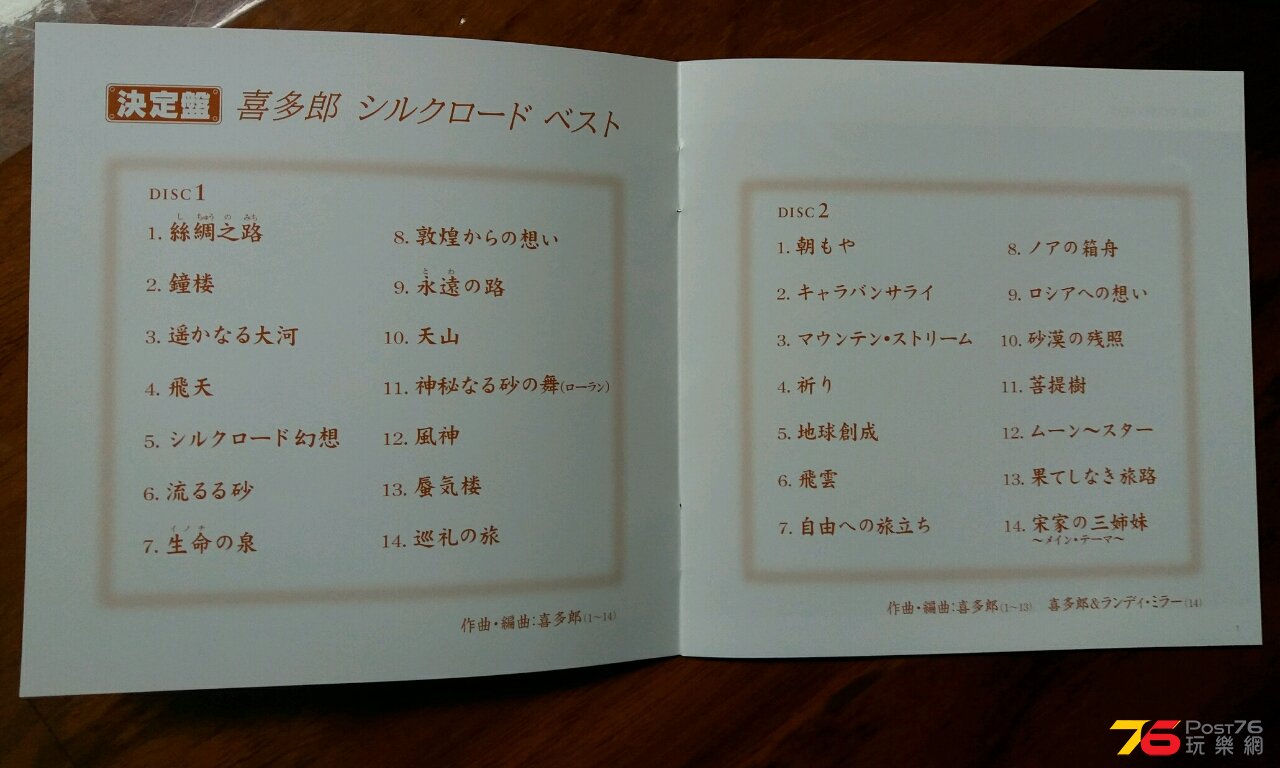 決定盤 喜多郎 シルクロード ベスト
DISC 1
し ちゅう の みち
1. 絲綢之路
2. 鐘楼
3. 遥かなる大河
4. 飛天
5. シルクロード幻想
6. 流るる砂
イノチ
7. 生命の泉
8. 敦煌からの想い
とわ
9. 永遠の路
10. 天山
11. 神秘なる砂の舞(ローラン)
12. 風神
13. 蜃気楼
14. 巡礼の旅
作曲・編曲:喜多郎(1~14)
DISC 2
1. 朝もや
2. キャラバンサライ
3. マウンテン・ストリーム
4. 祈り
5. 地球創成
6. 飛雲
7. 自由への旅立ち
8. ノアの箱舟
9. ロシアへの想い
10. 砂漠の残照
11. 菩提樹
12. ムーン~スター
13. 果てしなき旅路
14. 宋家の三姉妹
~メイン・テーマ~
作曲・編曲:喜多郎(1~13) 喜多郎&ランディ・ミラー(14)
1
76 POST76
玩樂網